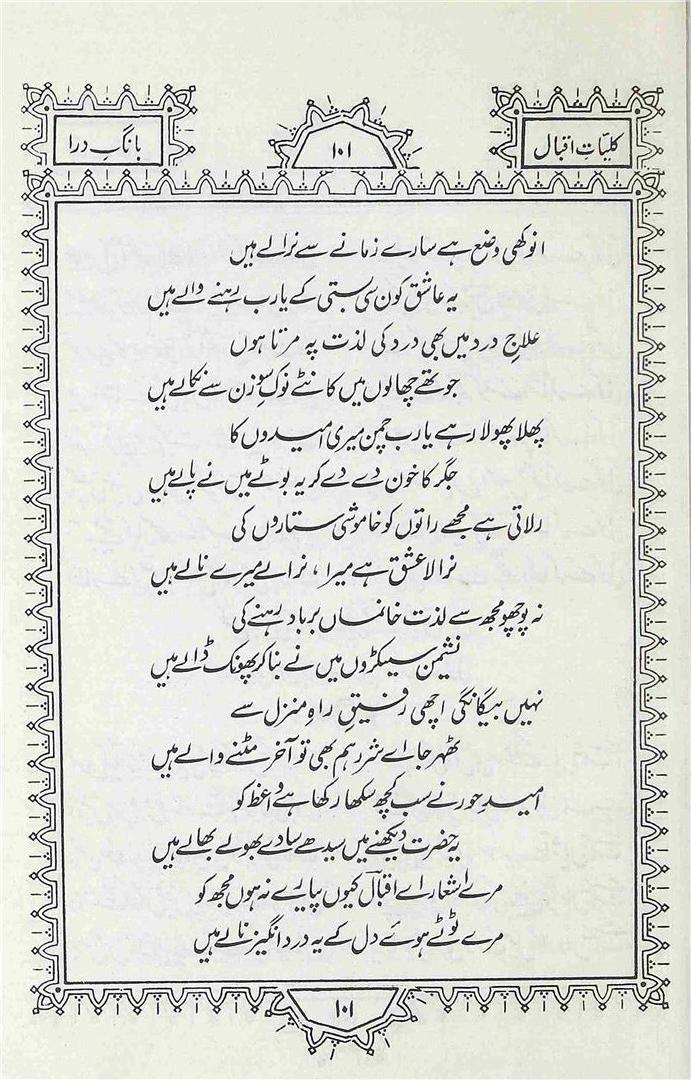 کلیّاتِ اقبال
۱۰۱
بانگِ درا
انوکھی وضع ہے سارے زمانے سے نرالے ہیں
یہ عاشق کون سی بستی کے یارب رہنے والے ہیں
علاجِ درد میں بھی درد کی لذت پہ مرتا ہوں
جو تھے چھالوں میں کانٹے نوکِ سوزن سے نکالے ہیں
پھلا پھولا رہے یارب چمن میری امیدوں کا
جگر کا خون دے دے کر یہ بوٹے میں نے پالے ہیں
رلاتی ہے مجھے راتوں کو خاموشی ستاروں کی
نرالا عشق ہے میرا، نرالے میرے نالے ہیں
نہ پوچھو مجھ سے لذت خانماں برباد رہنے کی
نشیمن سینکڑوں میں نے بنا کر پھونک ڈالے ہیں
نہیں بیگانگی اچھی رفیقِ راہِ منزل سے
ٹھہر جا اے شرر ہم بھی تو آخر مٹنے والے ہیں
امیدِ حور نے سب کچھ سکھا رکھا ہے واعظ کو
یہ حضرت دیکھنے میں سیدھے سادے بھولے بھالے ہیں
مرے اشعار اے اقبالؔ کیوں پیارے نہ ہوں مجھ کو
مرے ٹوٹے ہوئے دل کے یہ درد انگیز نالے ہیں
۱۰۱